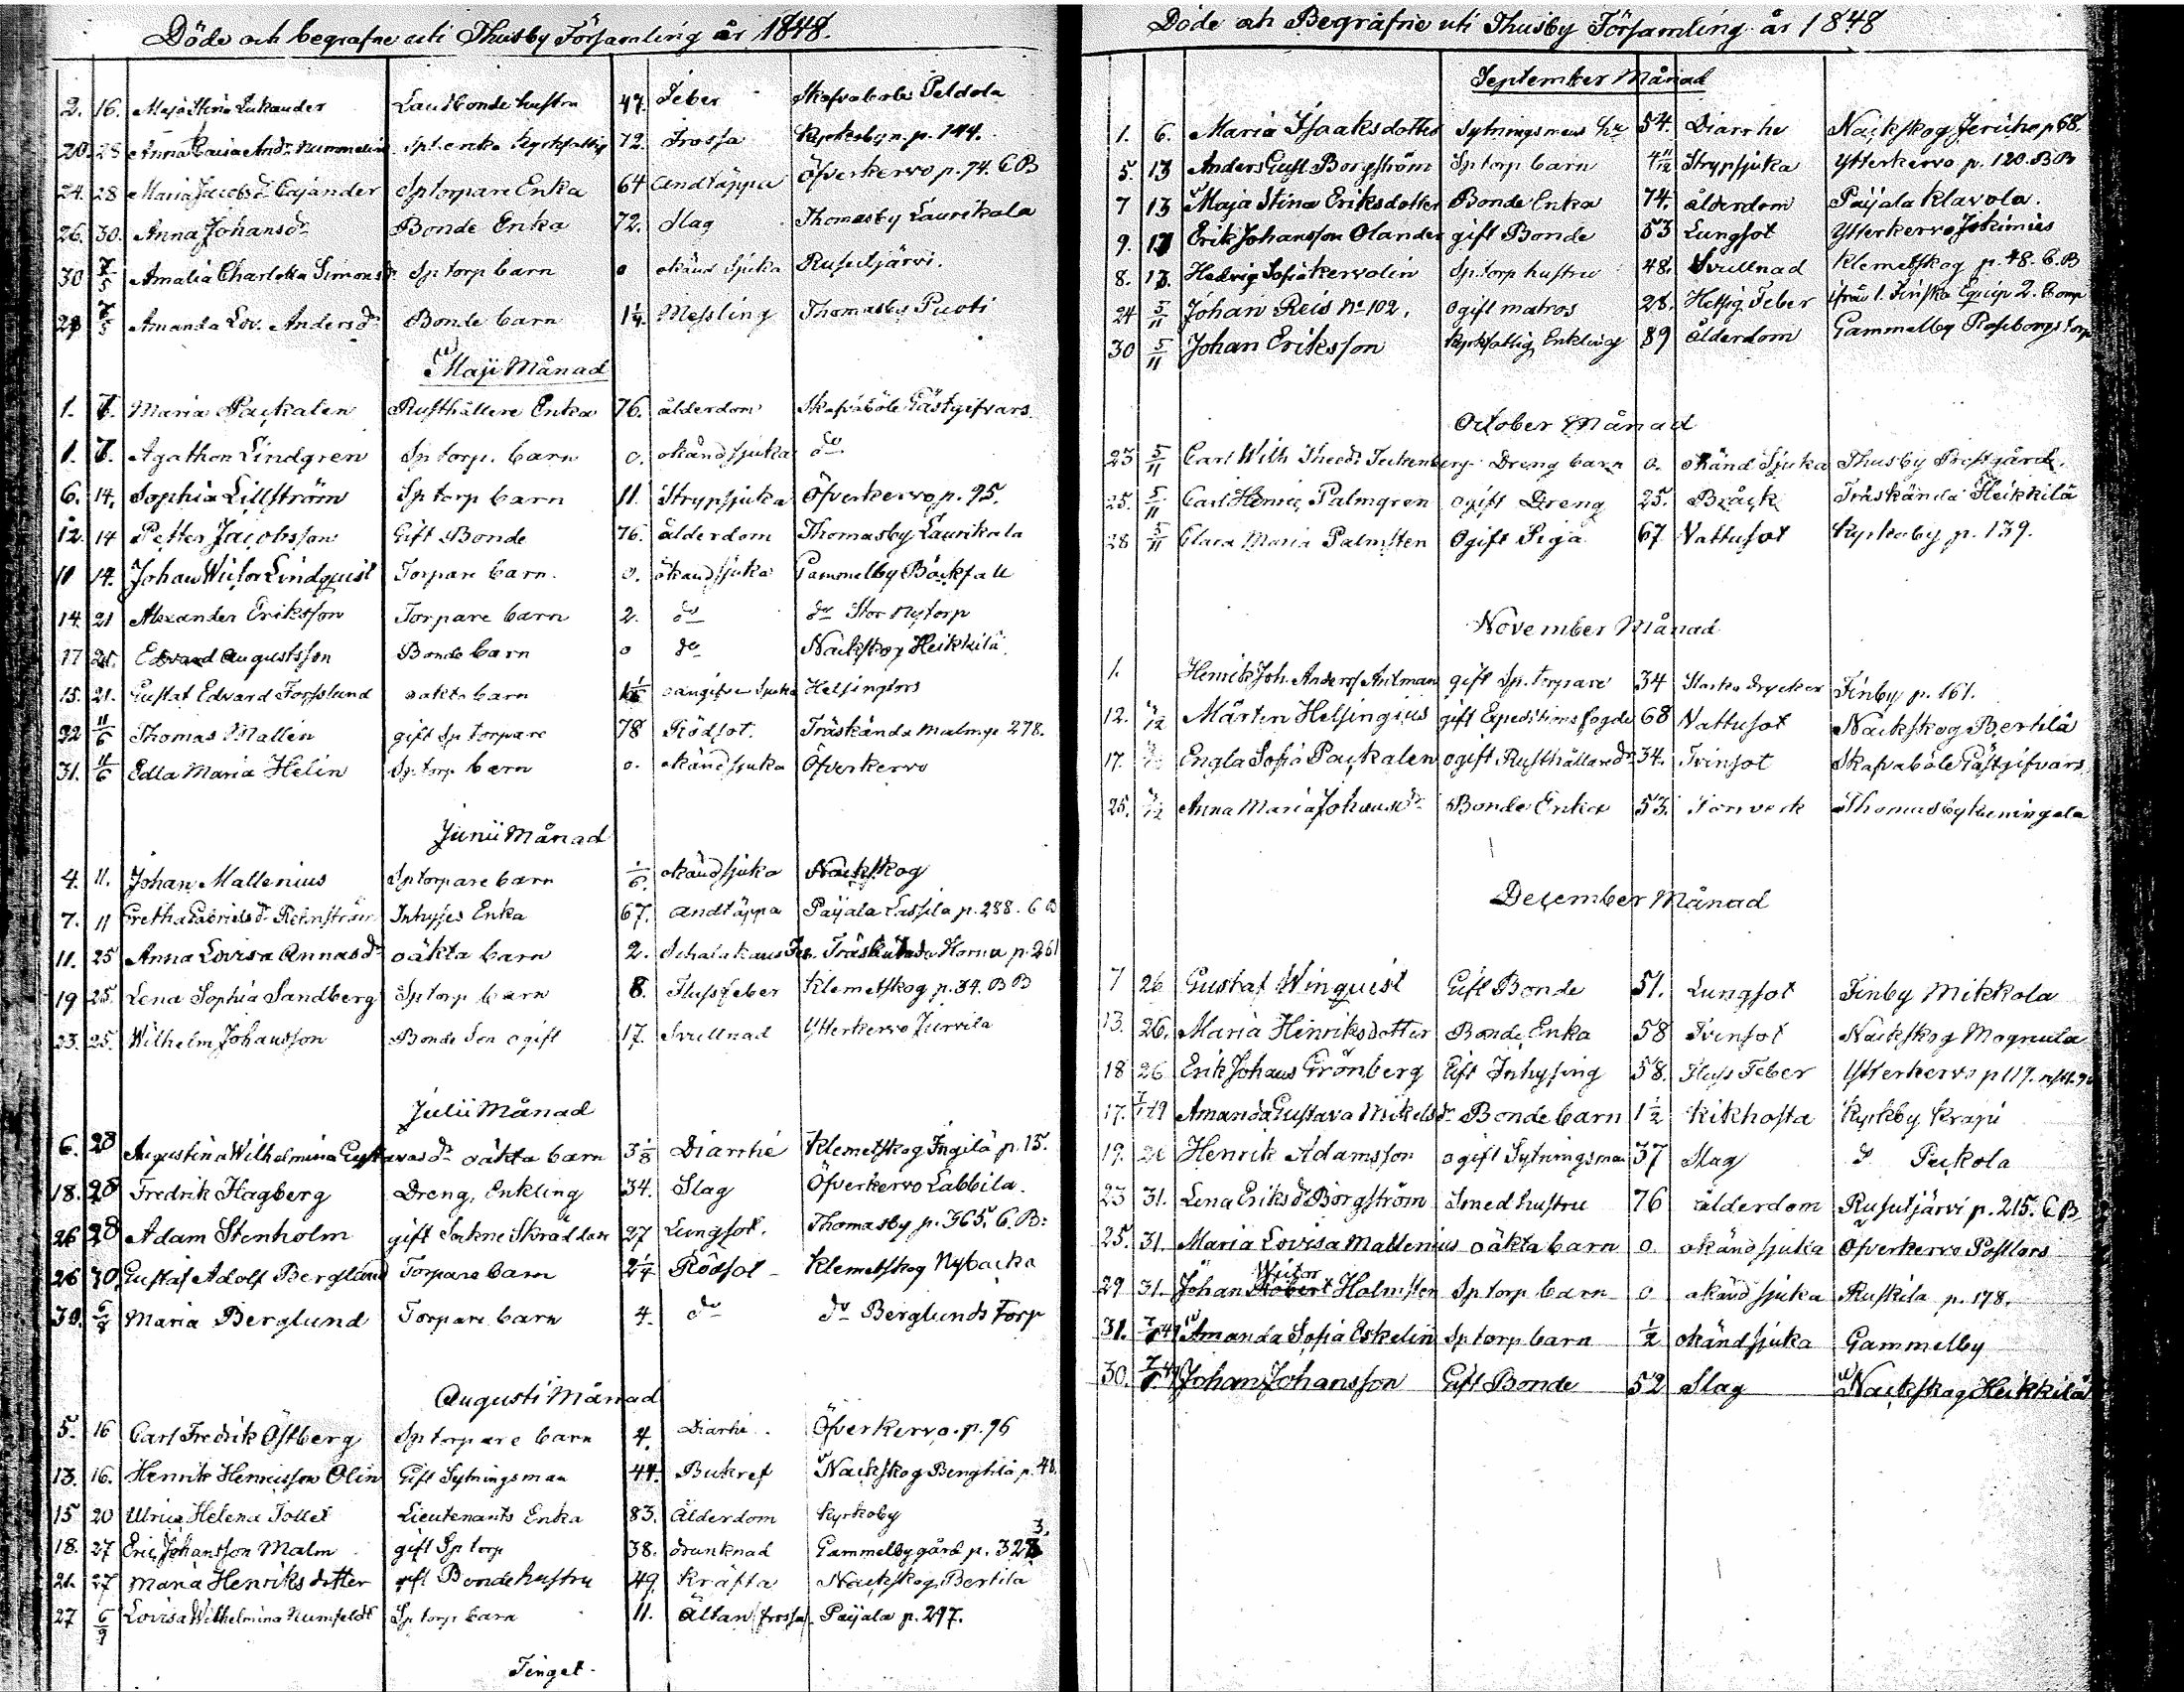 Döde och begrafne uti Thusby Församling år 1848.
2. 16. Maja Stina Lukander Landbonde hustru 47. Feber Skafvaböle Peldola
20. 28 Anna Caisa And.dr Nummelin Sp. enka kyrkfattig 72. Frossa Kyrkoby n. p. 144.
24. 28 Maria Jacobsdr Cajander Sp torpare Enka 64 Andtäppa Öfverkervo p. 74. C B
26. 30. Anna Johansdr Bonde Enka 72. Slag Thomasby Laurikala
30 7/5 Amalia Charlotta Simonsdr Sp torp barn 0 okänd sjuka Rusutjärvi.
28 7/5 Amanda Lov. Andersdr Bonde barn 1 1/4 Messling Thomasby Puoti
Maji Månad
1. 7. Maria Packalen Rusthållere Enka 76. ålderdom Skafvaböle Gästgifvars
1. 7. Agathon Lindgren Sp torp. barn 0. okänd sjuka do
6. 14. Sophia Lillström Sp torp barn 11. Strypsjuka Öfverkervo p. 95.
12. 14 Petter Jacobsson Gift Bonde 76. ålderdom Thomasby Laurikala
10 14. Johan Victor Lindquist Torpare barn. 0. okänd sjuka Gammelby Backfall
14. 21 Alexander Eriksson Torpare barn 2. do do Stor Nytorp
17 21. Edvard Augustsson Bonde barn 0 do Nackskog Heikkilä.
15. 21. Gustaf Edvard Forsslund oäkta barn oangifven sjuka Helsingfors
22 11/6 Thomas Mallen gift Sp torpare 78 Rödsot. Träskända Malmgr 278.
31. 11/6 Edla Maria Helin Sp. torp barn 0. okänd sjuka Öfverkervo
Junii Månad
4. 11. Johan Mallenius Sp torpare barn 1/6. okänd sjuka Nackskog
7. 11 Gretha Gabrielsdr Rehnström Inhyses Enka 67. Andtäppa Paijala Lassila p. 288. C B
11. 25 Anna Lovisa Annasdr oäkta barn 2. Schalakans Feb. Träskända Horna p. 261
19 25. Lena Sophia Sandberg Sp torp barn 8. Fluss feber Klemetskog p. 34. B B
23. 25. Wilhelm Johansson Bonde Son ogift 17. Svullnad Ytterkervo Jurvila
Julii Månad
6. 28 Augustina Wilhelmina Gustavasdr oäkta barn 3 1/8 Diarrhé Klemetskog Ingilä p. 15.
18. 28 Fredrik Hagberg Dreng, Enkling 34. Slag Öfverkervo Labbila.
26 28 Adam Stenholm gift Sokne Skräddare 27 Lungsot. Thomasby p. 365. C. B:
26 30. Gustaf Adolf Berglund Torpare barn 2 1/4 Rödsot Klemetskog Nybacka
30. 6/8 Maria Berglund Torpare barn 4. do do Berglunds Torp
Augusti Månad
5. 16 Carl Fredrik Östberg Sp torpare barn 4. Diarhé. Öfverkervo. p. 96
13. 16. Henrik Henricsson Olin Gift Sytningsman 44. Bukref Nackskog Bengtilä p. 48.
15 20 Ulrica Helena Tollet Lieutenants Enka 83. Ålderdom Kyrkoby
18. 27 Eric Johansson Malm gift Sp torp 38. drunknad Gammelby gård p. 323
21. 27 Maria Henriksdotter gift Bonde hustru 49. Kräfta Nackskog Bertila
27 6/9 Lovisa Wilhelmina Numfeldt Sp torp barn 11. Ältan /frossa/. Paijala p. 297.
Tinget
Döde och Begrafne uti Thusby Församling år 1848
September Månad
1. 6. Maria Isaaksdotter Sytningsmans hu 54. Diarrhe Nackskog Jericho p 68.
5. 13 Anders Gust Borgström Sp torp barn 4 11/12 Strypsjuka Ytterkervo p. 120. B B
7 13 Maja Stina Eriksdotter Bonde Enka 74. ålderdom Paijala Klavola.
9. 17 Erik Johansson Olander gift Bonde 53 Lungsot Ytterkervo Jokimies
8. 13. Hedvig Sofia Kervolin Sp. torp hustru 48. Svullnad Klemetskog p. 48. C. B
24 5/11 Johan Reis No 102. ogift matros 28. Hetsig Feber ifrån 1. Finska Equip 2. Comp
30 5/11 Johan Eriksson Kyrkfattig Enkling 89 ålderdom Gammelby Roseborgs torp
October Månad
23 5/11 Carl Wilh Theod. Teckenberg Dreng barn 0. okänd Sjuka Thusby Prestgård.
25. 5/11 Carl Henric Palmgren ogift Dreng 25. Bråck Träskända Heikkilä
28 5/11 Clara Maria Palmsten Ogift Piga 67 Vattusot Kyrkoby p. 139.
November Månad
1. Henrik Joh. Anderss Ahlman gift Sp. torpare 34 Starka drycker Finby p. 161.
12. Mårten Helsingius gift Expeditions fogde 68 Vattusot Nackskog Bertilä
17. Engla Sofia Packalen ogift Rusthållare dr 34. Tvinsot Skafvaböle Gästgifvars
25. Anna Maria Johansdr Bonde Enka 53. Torrverk Thomasby Keningala
December Månad
7 26 Gustaf Winquist Gift Bonde 51. Lungsot Finby Mikkola
13. 26. Maria Hinriksdotter Bonde Enka 58 Tvinsot Nackskog Magnula
18 26 Erik Johans Grönberg Gift Inhysing 58. Fluss Feber Ytterkervo p 117.
17. Amanda Gustava Mickelsdr Bonde barn 1 1/2 Kikhosta Kyrkby Krapi
19. 26 Henrik Adamsson ogift Sytningsman 37 Slag do Pickola
23 31. Lena Eriksdr Borgström Smed hustru 76 ålderdom Rusutjärvi p. 215. C B
25. 31. Maria Lovisa Mallenius oäkta barn 0. okänd sjuka Öfverkervo Postlars
29 31. Johan Victor Holmsten Sp torp barn 0 okänd sjuka Ruskila p. 178.
31. Amanda Sofia Eskelin Sp torp barn 1/2 okänd sjuka Gammelby
30. Johan Johansson Gift Bonde 52 Slag Nackskog Heikkilä